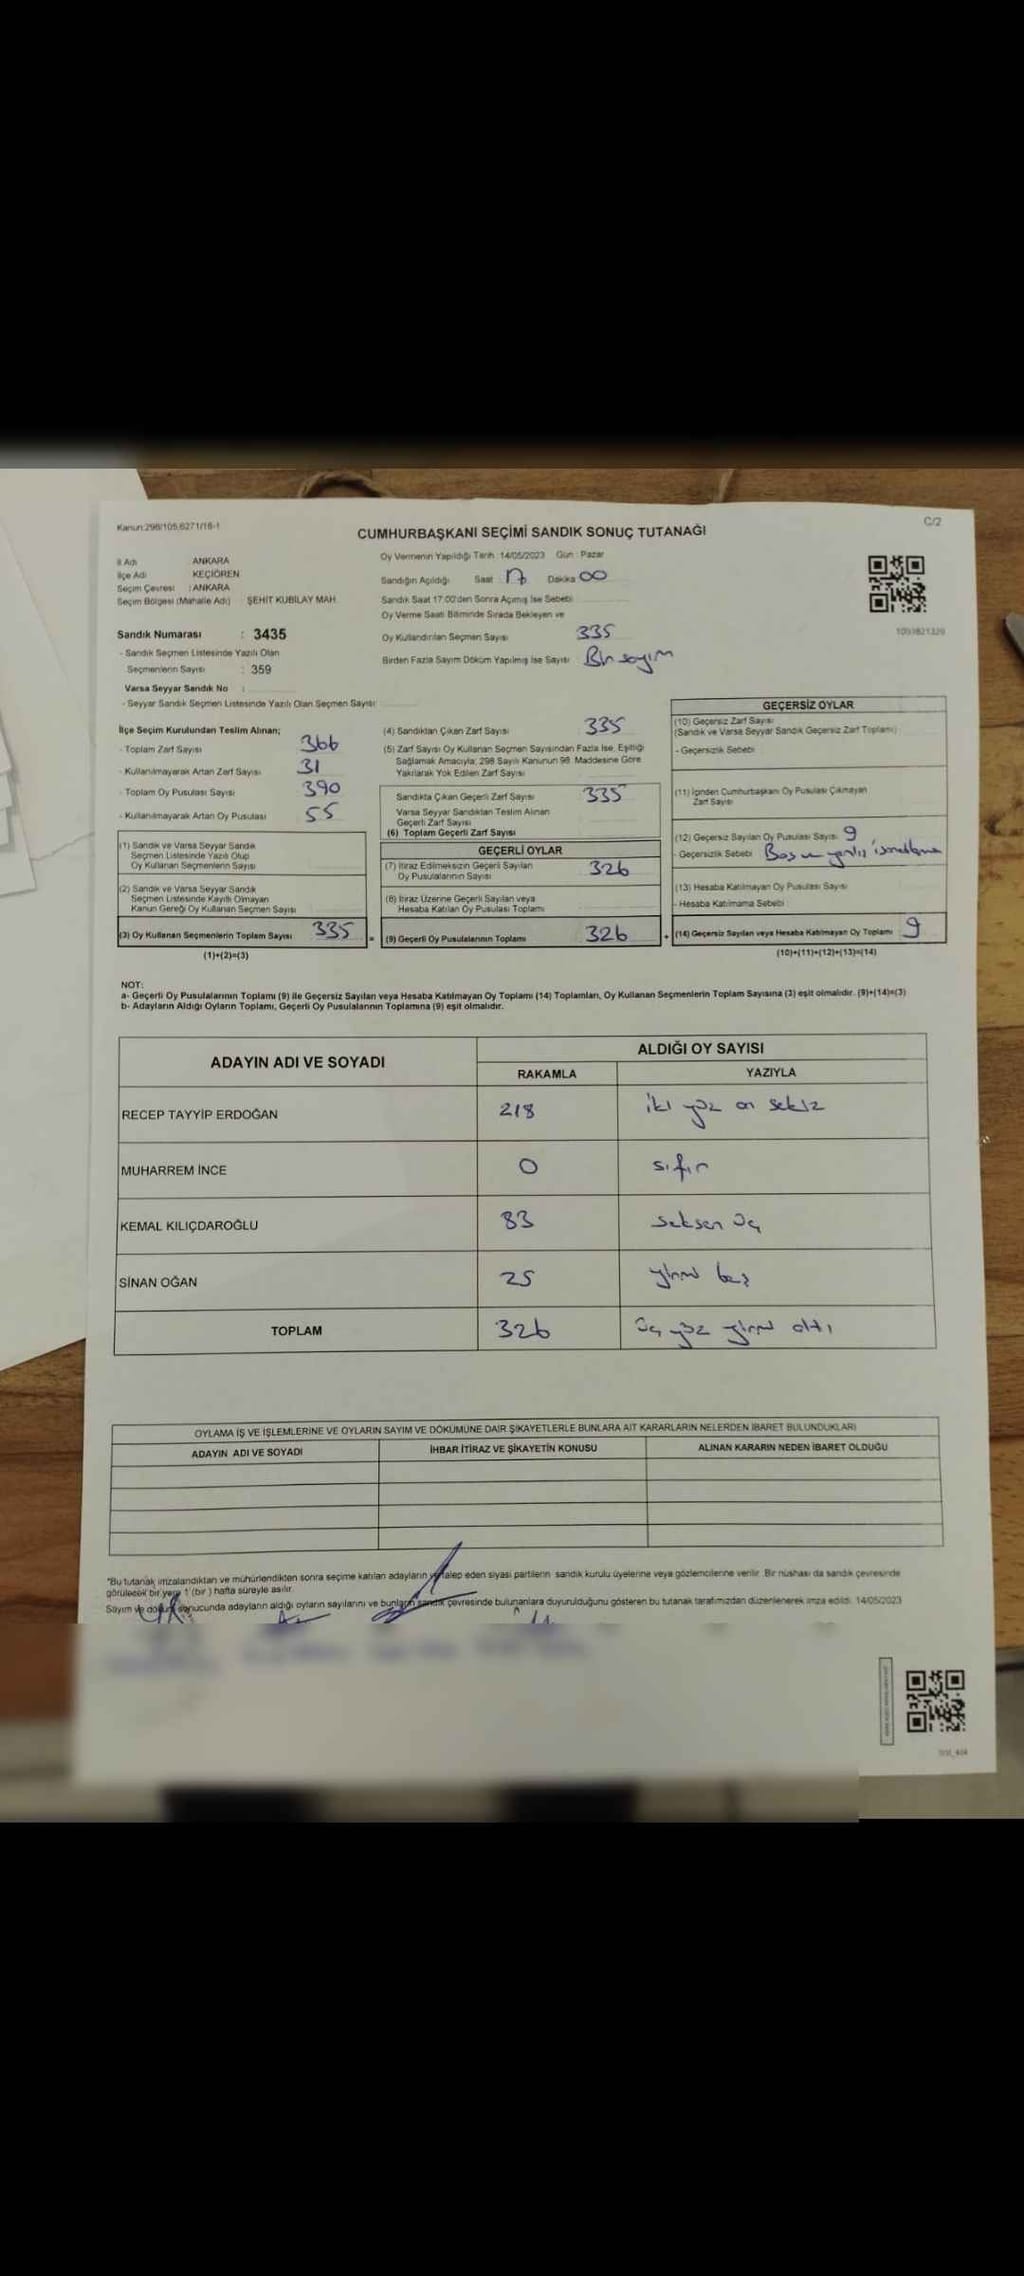 Kanun:298/105,6271/18-1
C/2
CUMHURBAŞKANI SEÇİMİ SANDIK SONUÇ TUTANAĞI
İl Adı : ANKARA
İlçe Adı : KEÇİÖREN
Seçim Çevresi : ANKARA
Seçim Bölgesi (Mahalle Adı) : ŞEHİT KUBİLAY MAH.
Sandık Numarası : 3435
- Sandık Seçmen Listesinde Yazılı Olan
Seçmenlerin Sayısı : 359
Varsa Seyyar Sandık No :
- Seyyar Sandık Seçmen Listesinde Yazılı Olan Seçmen Sayısı:
Oy Vermenin Yapıldığı Tarih :14/05/2023 Gün : Pazar
Sandığın Açıldığı Saat : 17 Dakika 00
Sandık Saat 17:00'den Sonra Açımış İse Sebebi:
Oy Verme Saati Bitiminde Sırada Bekleyen ve
Oy Kullandırılan Seçmen Sayısı 335
Birden Fazla Sayım Döküm Yapılmış İse Sayısı : Bir sayım
1093821320
İlçe Seçim Kurulundan Teslim Alınan;
- Toplam Zarf Sayısı 366
- Kullanılmayarak Artan Zarf Sayısı 31
- Toplam Oy Pusulası Sayısı 390
- Kullanılmayarak Artan Oy Pusulası 55
(1) Sandık ve Varsa Seyyar Sandık
Seçmen Listesinde Yazılı Olup
Oy Kullanan Seçmenlerin Sayısı
(2) Sandık ve Varsa Seyyar Sandık
Seçmen Listesinde Kayıtlı Olmayan
Kanun Gereği Oy Kullanan Seçmen Sayısı
(3) Oy Kullanan Seçmenlerin Toplam Sayısı 335
(1)+(2)=(3)
(4) Sandıktan Çıkan Zarf Sayısı 335
(5) Zarf Sayısı Oy Kullanan Seçmen Sayısından Fazla İse, Eşitliği
Sağlamak Amacıyla; 298 Sayılı Kanunun 98. Maddesine Göre
Yakılarak Yok Edilen Zarf Sayısı
Sandıkta Çıkan Geçerli Zarf Sayısı 335
Varsa Seyyar Sandıktan Teslim Alınan
Geçerli Zarf Sayısı
(6) Toplam Geçerli Zarf Sayısı
GEÇERLİ OYLAR
(7) İtiraz Edilmeksizin Geçerli Sayılan
Oy Pusulalarının Sayısı 326
(8) İtiraz Üzerine Geçerli Sayılan veya
Hesaba Katılan Oy Pusulası Toplamı
= (9) Geçerli Oy Pusulalarının Toplamı 326
GEÇERSİZ OYLAR
(10) Geçersiz Zarf Sayısı
(Sandık ve Varsa Seyyar Sandık Geçersiz Zarf Toplamı)
- Geçersizlik Sebebi
(11) İçinden Cumhurbaşkanı Oy Pusulası Çıkmayan
Zarf Sayısı
(12) Geçersiz Sayılan Oy Pusulası Sayısı 9
- Geçersizlik Sebebi Boş
(13) Hesaba Katılmayan Oy Pusulası Sayısı
- Hesaba Katılmama Sebebi
+ (14) Geçersiz Sayılan veya Hesaba Katılmayan Oy Toplamı 9
(10)+(11)+(12)+(13)=(14)
NOT:
a- Geçerli Oy Pusulalarının Toplamı (9) ile Geçersiz Sayılan veya Hesaba Katılmayan Oy Toplamı (14) Toplamları, Oy Kullanan Seçmenlerin Toplam Sayısına (3) eşit olmalıdır. (9)+(14)=(3)
b- Adayların Aldığı Oyların Toplamı, Geçerli Oy Pusulalarının Toplamına (9) eşit olmalıdır.
ADAYIN ADI VE SOYADI
ALDIĞI OY SAYISI
RAKAMLA YAZIYLA
RECEP TAYYİP ERDOĞAN 218 iki yüz on sekiz
MUHARREM İNCE 0 sıfır
KEMAL KILIÇDAROĞLU 83 seksen üç
SİNAN OĞAN 25 yirmi beş
TOPLAM 326 üç yüz yirmi altı
OYLAMA İŞ VE İŞLEMLERİNE VE OYLARIN SAYIM VE DÖKÜMÜNE DAİR ŞİKAYETLERLE BUNLARA AİT KARARLARIN NELERDEN İBARET BULUNDUKLARI
ADAYIN ADI VE SOYADI İHBAR İTİRAZ VE ŞİKAYETİN KONUSU ALINAN KARARIN NEDEN İBARET OLDUĞU
*Bu tutanak imzalandıktan ve mühürlendikten sonra seçime katılan adayların ve talep eden siyasi partilerin sandık kurulu üyelerine veya gözlemcilerine verilir. Bir nüshası da sandık çevresinde
görülecek bir yere 1 (bir ) hafta süreyle asılır.
Sayım ve döküm sonucunda adayların aldığı oyların sayılarını ve bunların sandık çevresinde bulunanlara duyurulduğunu gösteren bu tutanak tarafımızdan düzenlenerek imza edildi. 14/05/2023